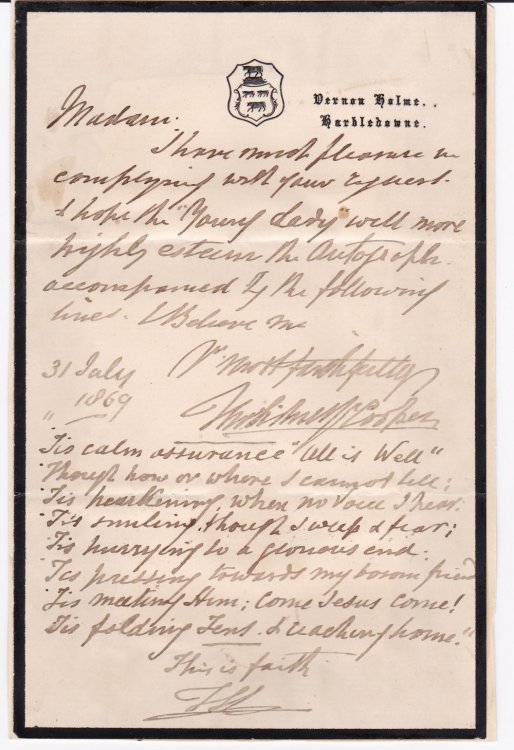 Vernon Holme.
Harbledowne.
Madam.
I have much pleasure in
complying with your request.
I hope the "Young Lady" will more
highly esteem the Autograph.
accompanied by the following
lines. & Believe me
Yr most faithfully
31 July
" 1869
Thos Sidney Cooper
"Tis calm assurance "All is Well"
Though how or where I cannot tell;
'Tis hearkening when no voice I hear.
'Tis smiling, though I weep & fear;
'Tis hurrying to a glorious end.
'Tis pressing towards my bosom friend
'Tis meeting Him; Come Jesus Come!
'Tis folding Tent. & reaching home."
This is faith
TSC